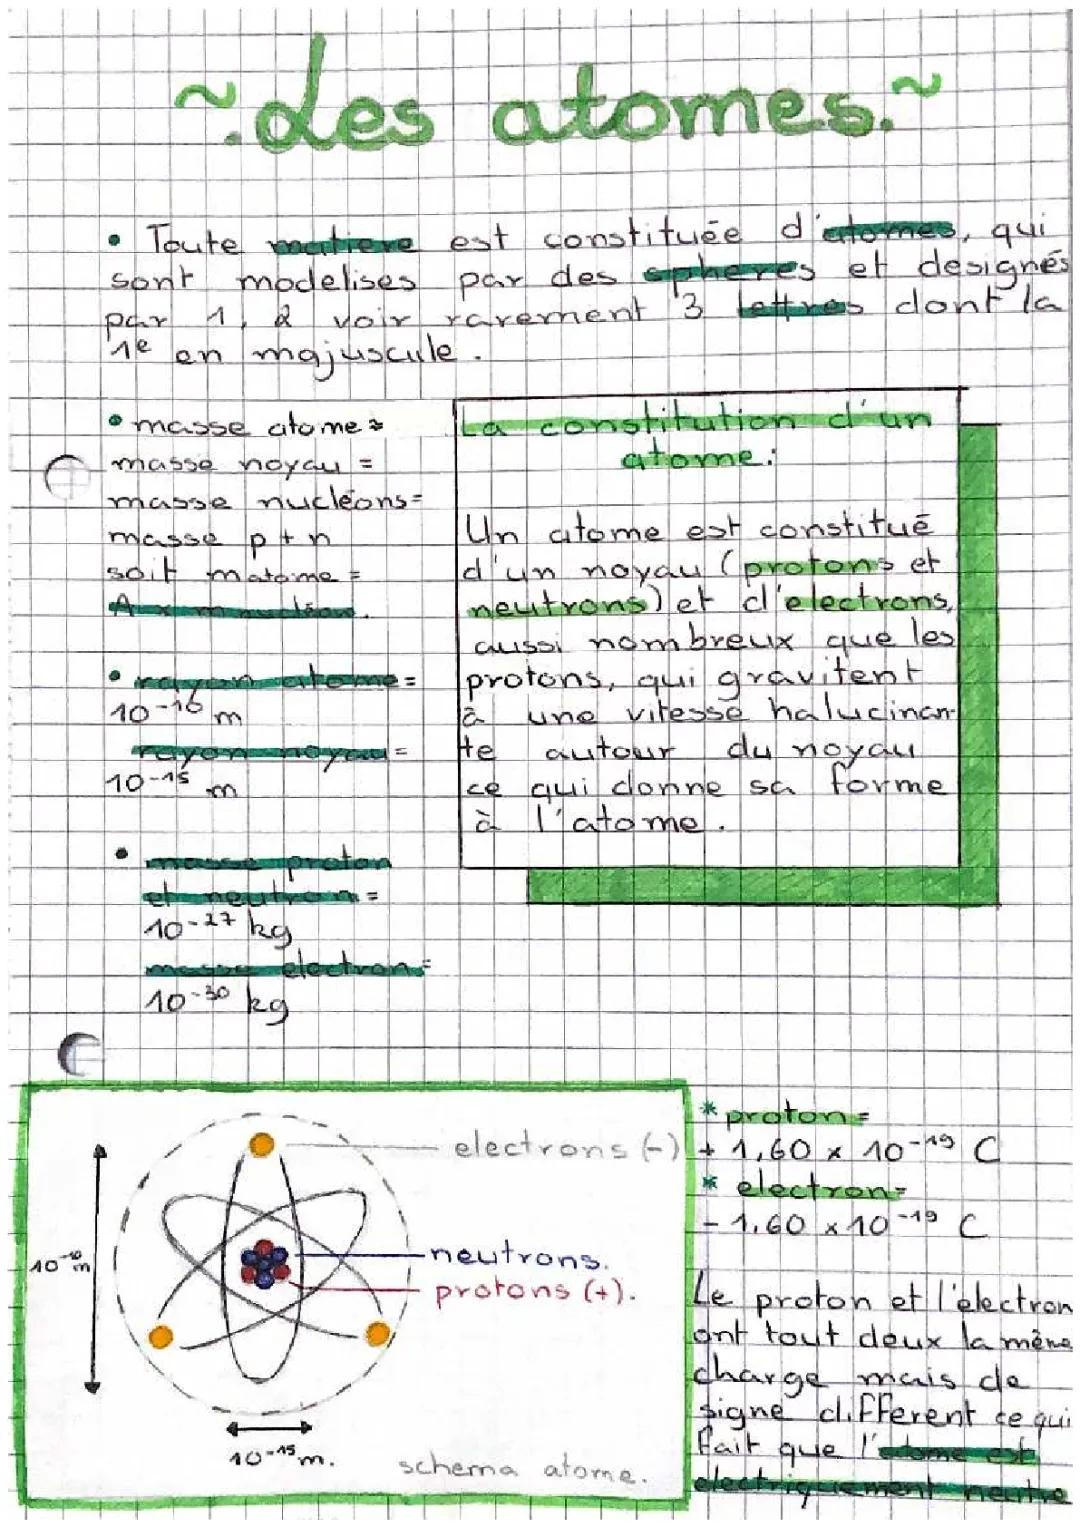 ~ Les atomes. ~
• Toute matiere est constituée d'atomes, qui
sont modelises par des spheres et designés
par 1, 2 voir rarement 3 lettres dont la
1e en majuscule.
• masse atome ≈
masse noyau =
masse nucléons =
masse p + n
soit matome =
A x mnucléon.
• rayon atome =
10-10 m
rayon noyau =
10-15 m
• masse proton
et neutron =
10-27 kg
masse electron =
10-30 kg
La constitution d'un
atome:
Un atome est constitué
d'un noyau (protons et
neutrons) et d'electrons,
aussi nombreux que les
protons, qui gravitent
à une vitesse halucinan-
te autour du noyau
ce qui donne sa forme
à l'atome.
electrons (-)
neutrons.
protons (+).
10-10 m
10-15 m.
schema atome.
* proton =
+ 1,60 x 10-19 C
* electron =
- 1.60 x 10-19 C
Le proton et l'électron
ont tout deux la même
charge mais de
signe different ce qui
fait que l'atome est
electriquement neutre